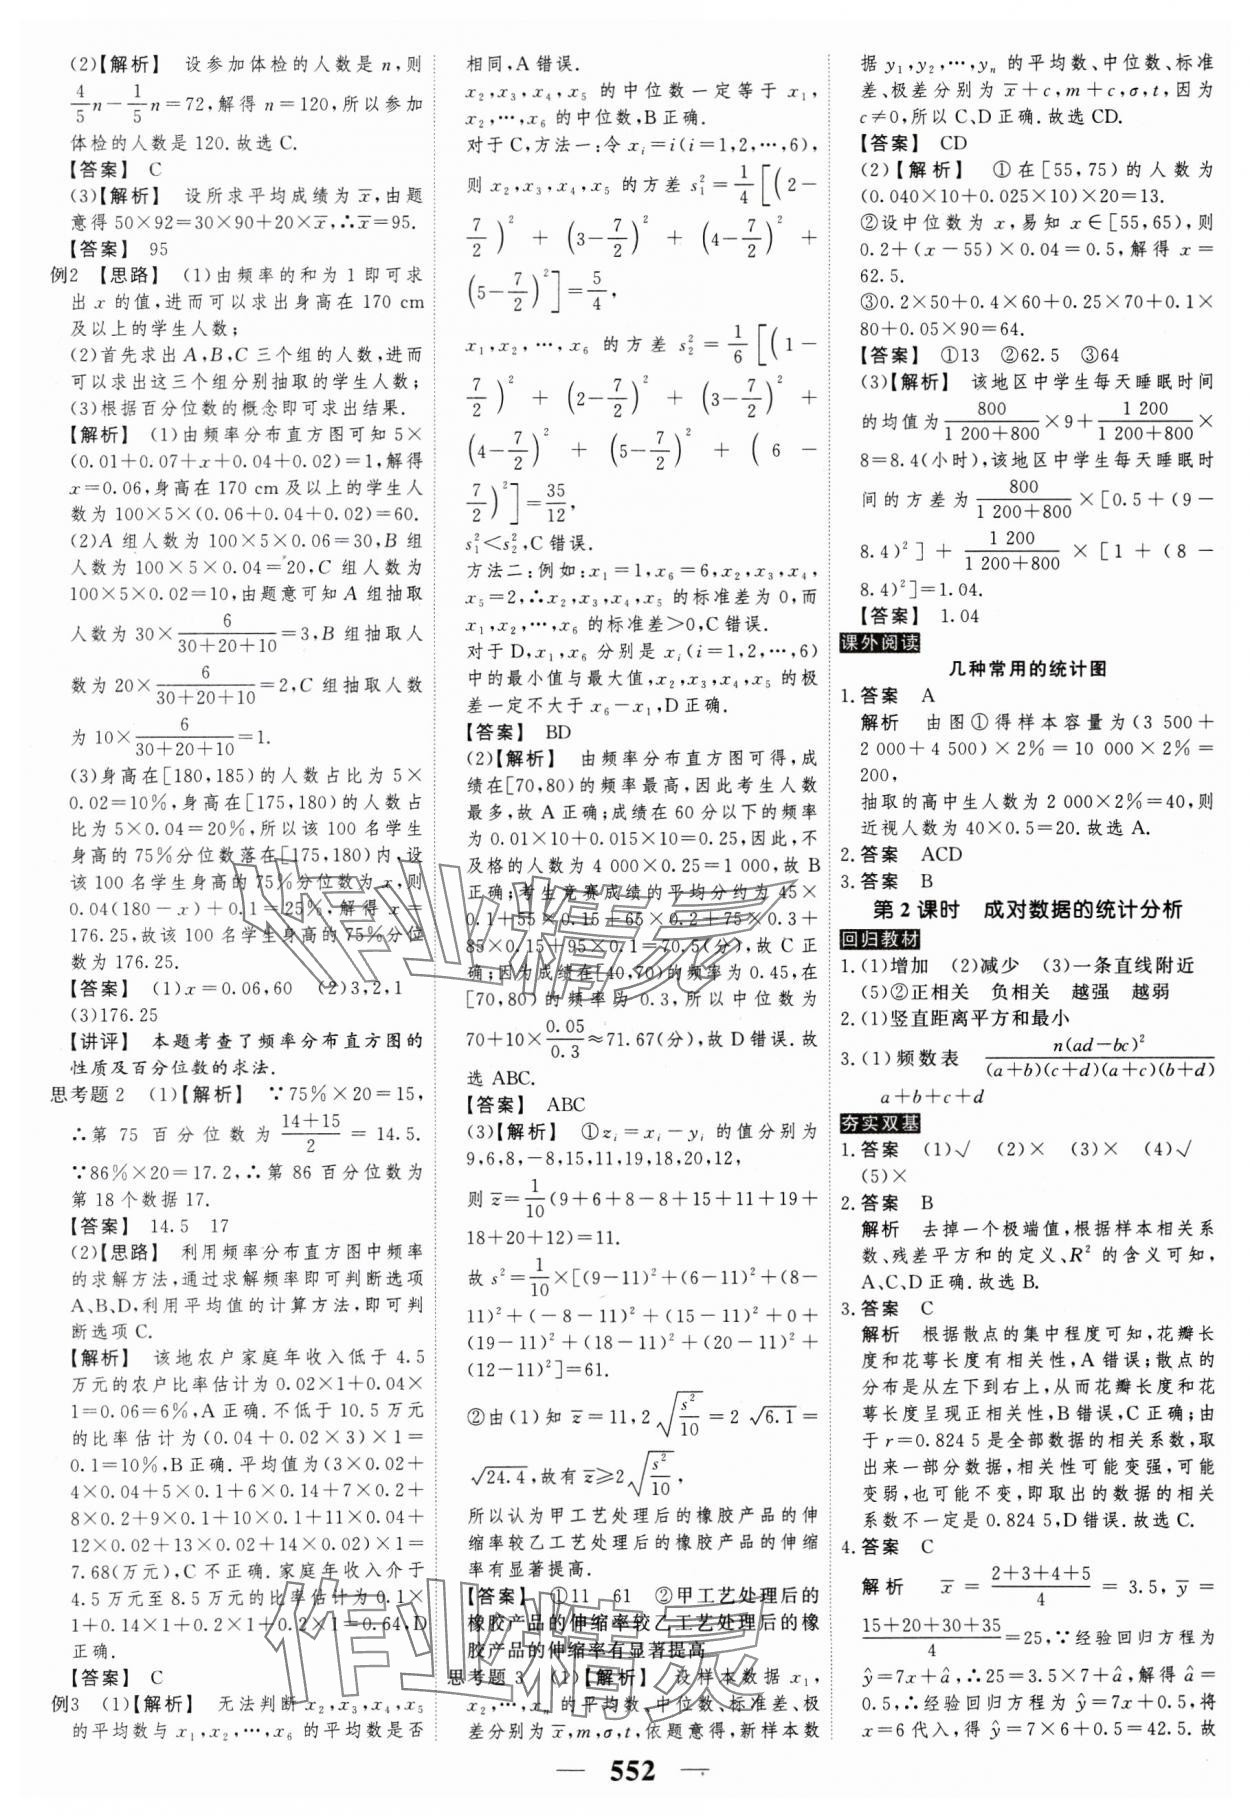 (2)【解析】 设参加体检的人数是 n,则
4/5 n－1/5 n＝72,解得 n＝120,所以参加
体检的人数是 120.故选 C.
【答案】 C
(3)【解析】 设所求平均成绩为 x̄,由题
意得 50×92＝30×90＋20×x̄,∴x̄＝95.
【答案】 95
例2 【思路】 (1)由频率的和为 1 即可求
出 x 的值,进而可以求出身高在 170 cm
及以上的学生人数;
(2)首先求出 A,B,C 三个组的人数,进而
可以求出这三个组分别抽取的学生人数;
(3)根据百分位数的概念即可求出结果.
【解析】 (1)由频率分布直方图可知 5×
(0.01＋0.07＋x＋0.04＋0.02)＝1,解得
x＝0.06,身高在 170 cm 及以上的学生人
数为 100×5×(0.06＋0.04＋0.02)＝60.
(2)A 组人数为 100×5×0.06＝30,B 组
人数为 100×5×0.04＝20,C 组人数为
100×5×0.02＝10,由题意可知 A 组抽取
人数为 30×6/(30＋20＋10)＝3,B 组抽取人
数为 20×6/(30＋20＋10)＝2,C 组抽取人数
为 10×6/(30＋20＋10)＝1.
(3)身高在[180,185)的人数占比为 5×
0.02＝10%,身高在[175,180)的人数占
比为 5×0.04＝20%,所以该 100 名学生
身高的 75%分位数落在[175,180)内,设
该 100 名学生身高的 75%分位数为 x,则
0.04(180－x)＋0.1＝25%,解得 x＝
176.25,故该 100 名学生身高的 75%分位
数为 176.25.
【答案】 (1)x＝0.06,60 (2)3,2,1
(3)176.25
【讲评】 本题考查了频率分布直方图的
性质及百分位数的求法.
思考题 2 (1)【解析】 ∵75%×20＝15,
∴第 75 百分位数为 (14＋15)/2＝14.5.
∵86%×20＝17.2,∴第 86 百分位数为
第 18 个数据 17.
【答案】 14.5 17
(2)【思路】 利用频率分布直方图中频率
的求解方法,通过求解频率即可判断选项
A、B、D,利用平均值的计算方法,即可判
断选项 C.
【解析】 该地农户家庭年收入低于 4.5
万元的农户比率估计为 0.02×1＋0.04×
1＝0.06＝6%,A 正确.不低于 10.5 万元
的比率估计为(0.04＋0.02×3)×1＝
0.1＝10%,B 正确.平均值为(3×0.02＋
4×0.04＋5×0.1＋6×0.14＋7×0.2＋
8×0.2＋9×0.1＋10×0.1＋11×0.04＋
12×0.02＋13×0.02＋14×0.02)×1＝
7.68(万元),C 不正确.家庭年收入介于
4.5 万元至 8.5 万元的比率估计为 0.1×
1＋0.14×1＋0.2×1＋0.2×1＝0.64,D
正确.
【答案】 C
例3 (1)【解析】 无法判断 x₂,x₃,x₄,x₅
的平均数与 x₁,x₂,…,x₆ 的平均数是否
相同,A 错误.
x₂,x₃,x₄,x₅ 的中位数一定等于 x₁,
x₂,…,x₆ 的中位数,B 正确.
对于 C,方法一:令 xᵢ＝i(i＝1,2,…,6),
则 x₂,x₃,x₄,x₅ 的方差 s₁²＝1/4[(2－
7/2)²＋(3－7/2)²＋(4－7/2)²＋
(5－7/2)²]＝5/4,
x₁,x₂,…,x₆ 的方差 s₂²＝1/6[(1－
7/2)²＋(2－7/2)²＋(3－7/2)²＋
(4－7/2)²＋(5－7/2)²＋(6－
7/2)²]＝35/12,
s₁²＜s₂²,C 错误.
方法二:例如:x₁＝1,x₆＝6,x₂,x₃,x₄,
x₅＝2,∴x₂,x₃,x₄,x₅ 的标准差为 0,而
x₁,x₂,…,x₆ 的标准差＞0,C 错误.
对于 D,x₁,x₆ 分别是 xᵢ(i＝1,2,…,6)
中的最小值与最大值,x₂,x₃,x₄,x₅ 的极
差一定不大于 x₆－x₁,D 正确.
【答案】 BD
(2)【解析】 由频率分布直方图可得,成
绩在[70,80)的频率最高,因此考生人数
最多,故 A 正确;成绩在 60 分以下的频率
为 0.01×10＋0.015×10＝0.25,因此,不
及格的人数为 4 000×0.25＝1 000,故 B
正确;考生竞赛成绩的平均分约为 45×
0.1＋55×0.15＋65×0.2＋75×0.3＋
85×0.15＋95×0.1＝70.5(分),故 C 正
确;因为成绩在[40,70)的频率为 0.45,在
[70,80)的频率为 0.3,所以中位数为
70＋10×0.05/0.3≈71.67(分),故 D 错误.故
选 ABC.
【答案】 ABC
(3)【解析】 ①zᵢ＝xᵢ－yᵢ 的值分别为
9,6,8,－8,15,11,19,18,20,12,
则 z̄＝1/10(9＋6＋8－8＋15＋11＋19＋
18＋20＋12)＝11.
故 s²＝1/10×[(9－11)²＋(6－11)²＋(8－
11)²＋(－8－11)²＋(15－11)²＋0＋
(19－11)²＋(18－11)²＋(20－11)²＋
(12－11)²]＝61.
②由(1)知 z̄＝11,2√(s²/10)＝2√6.1＝
√24.4,故有 z̄≥2√(s²/10),
所以认为甲工艺处理后的橡胶产品的伸
缩率较乙工艺处理后的橡胶产品的伸缩
率有显著提高.
【答案】 ①11 61 ②甲工艺处理后的
橡胶产品的伸缩率较乙工艺处理后的橡
胶产品的伸缩率有显著提高
思考题 3 (1)【解析】 设样本数据 x₁,
x₂,…,xₙ 的平均数、中位数、标准差、极
差分别为 x̄,m,σ,t,依题意得,新样本数
据 y₁,y₂,…,yₙ 的平均数、中位数、标准
差、极差分别为 x̄＋c,m＋c,σ,t,因为
c≠0,所以 C、D 正确.故选 CD.
【答案】 CD
(2)【解析】 ①在[55,75)的人数为
(0.040×10＋0.025×10)×20＝13.
②设中位数为 x,易知 x∈[55,65),则
0.2＋(x－55)×0.04＝0.5,解得 x＝
62.5.
③0.2×50＋0.4×60＋0.25×70＋0.1×
80＋0.05×90＝64.
【答案】 ①13 ②62.5 ③64
(3)【解析】 该地区中学生每天睡眠时间
的均值为 800/(1 200＋800)×9＋1 200/(1 200＋800)×
8＝8.4(小时),该地区中学生每天睡眠时
间的方差为 800/(1 200＋800)×[0.5＋(9－
8.4)²]＋1 200/(1 200＋800)×[1＋(8－
8.4)²]＝1.04.
【答案】 1.04
课外阅读
几种常用的统计图
1.答案 A
解析 由图①得样本容量为(3 500＋
2 000＋4 500)×2%＝10 000×2%＝
200,
抽取的高中生人数为 2 000×2%＝40,则
近视人数为 40×0.5＝20.故选 A.
2.答案 ACD
3.答案 B
第 2 课时 成对数据的统计分析
回归教材
1.(1)增加 (2)减少 (3)一条直线附近
(5)②正相关 负相关 越强 越弱
2.(1)竖直距离平方和最小
3.(1)频数表 n(ad－bc)²/((a＋b)(c＋d)(a＋c)(b＋d))
a＋b＋c＋d
夯实双基
1.答案 (1)√ (2)× (3)× (4)√
(5)×
2.答案 B
解析 去掉一个极端值,根据样本相关系
数、残差平方和的定义、R² 的含义可知,
A、C、D 正确.故选 B.
3.答案 C
解析 根据散点的集中程度可知,花瓣长
度和花萼长度有相关性,A 错误;散点的
分布是从左下到右上,从而花瓣长度和花
萼长度呈现正相关性,B 错误,C 正确;由
于 r＝0.824 5 是全部数据的相关系数,取
出来一部分数据,相关性可能变强,可能
变弱,也可能不变,即取出的数据的相关
系数不一定是 0.824 5,D 错误.故选 C.
4.答案 C
解析 x̄＝(2＋3＋4＋5)/4＝3.5,ȳ＝
(15＋20＋30＋35)/4＝25,∵经验回归方程为
ŷ＝7x＋â,∴25＝3.5×7＋â,解得 â＝
0.5,∴经验回归方程为 ŷ＝7x＋0.5,将
x＝6 代入,得 ŷ＝7×6＋0.5＝42.5.故
— 552 —
作业精灵
作业精灵